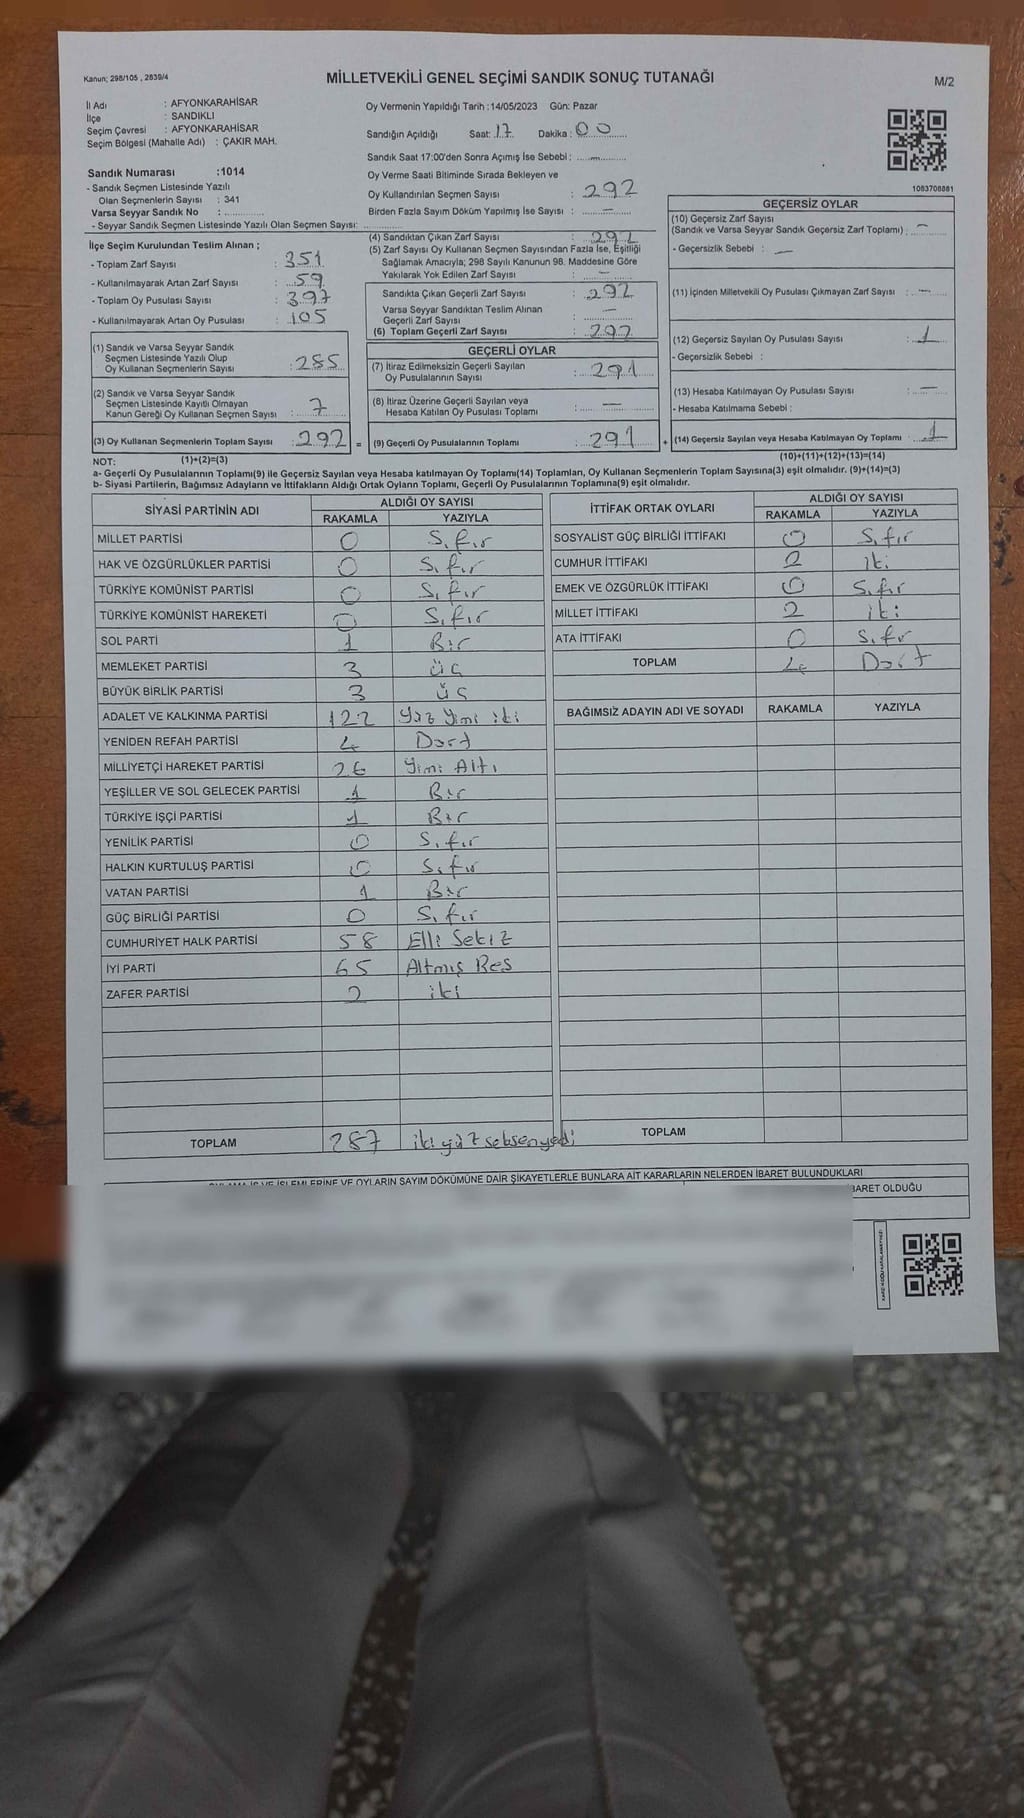 Kanun; 298/105 , 2839/4
MİLLETVEKİLİ GENEL SEÇİMİ SANDIK SONUÇ TUTANAĞI
M/2
İl Adı : AFYONKARAHİSAR
İlçe : SANDIKLI
Seçim Çevresi : AFYONKARAHİSAR
Seçim Bölgesi (Mahalle Adı) : ÇAKIR MAH.
Oy Vermenin Yapıldığı Tarih :14/05/2023 Gün: Pazar
Sandığın Açıldığı Saat: 17 Dakika : 00
Sandık Saat 17:00'den Sonra Açımış İse Sebebi : —
Oy Verme Saati Bitiminde Sırada Bekleyen ve
Oy Kullandırılan Seçmen Sayısı : 292
Birden Fazla Sayım Döküm Yapılmış İse Sayısı : —
Sandık Numarası :1014
- Sandık Seçmen Listesinde Yazılı
Olan Seçmenlerin Sayısı : 341
Varsa Seyyar Sandık No :
- Seyyar Sandık Seçmen Listesinde Yazılı Olan Seçmen Sayısı:
1083708881
İlçe Seçim Kurulundan Teslim Alınan ;
- Toplam Zarf Sayısı : 351
- Kullanılmayarak Artan Zarf Sayısı : 59
- Toplam Oy Pusulası Sayısı : 397
- Kullanılmayarak Artan Oy Pusulası : 105
(1) Sandık ve Varsa Seyyar Sandık
Seçmen Listesinde Yazılı Olup
Oy Kullanan Seçmenlerin Sayısı : 285
(2) Sandık ve Varsa Seyyar Sandık
Seçmen Listesinde Kayıtlı Olmayan
Kanun Gereği Oy Kullanan Seçmen Sayısı : 7
(3) Oy Kullanan Seçmenlerin Toplam Sayısı : 292 =
(1)+(2)=(3)
(4) Sandıktan Çıkan Zarf Sayısı : 292
(5) Zarf Sayısı Oy Kullanan Seçmen Sayısından Fazla İse, Eşitliği
Sağlamak Amacıyla; 298 Sayılı Kanunun 98. Maddesine Göre
Yakılarak Yok Edilen Zarf Sayısı : —
Sandıkta Çıkan Geçerli Zarf Sayısı : 292
Varsa Seyyar Sandıktan Teslim Alınan
Geçerli Zarf Sayısı : —
(6) Toplam Geçerli Zarf Sayısı : 292
GEÇERLİ OYLAR
(7) İtiraz Edilmeksizin Geçerli Sayılan
Oy Pusulalarının Sayısı : 291
(8) İtiraz Üzerine Geçerli Sayılan veya
Hesaba Katılan Oy Pusulası Toplamı : —
(9) Geçerli Oy Pusulalarının Toplamı : 291 +
GEÇERSİZ OYLAR
(10) Geçersiz Zarf Sayısı
(Sandık ve Varsa Seyyar Sandık Geçersiz Zarf Toplamı) : —
- Geçersizlik Sebebi : —
(11) İçinden Milletvekili Oy Pusulası Çıkmayan Zarf Sayısı : —
(12) Geçersiz Sayılan Oy Pusulası Sayısı : 1
- Geçersizlik Sebebi :
(13) Hesaba Katılmayan Oy Pusulası Sayısı : —
- Hesaba Katılmama Sebebi :
(14) Geçersiz Sayılan veya Hesaba Katılmayan Oy Toplamı : 1
(10)+(11)+(12)+(13)=(14)
NOT:
a- Geçerli Oy Pusulalarının Toplamı(9) ile Geçersiz Sayılan veya Hesaba katılmayan Oy Toplamı(14) Toplamları, Oy Kullanan Seçmenlerin Toplam Sayısına(3) eşit olmalıdır. (9)+(14)=(3)
b- Siyasi Partilerin, Bağımsız Adayların ve İttifakların Aldığı Ortak Oyların Toplamı, Geçerli Oy Pusulalarının Toplamına(9) eşit olmalıdır.
SİYASİ PARTİNİN ADI ALDIĞI OY SAYISI
RAKAMLA YAZIYLA
MİLLET PARTİSİ 0 Sıfır
HAK VE ÖZGÜRLÜKLER PARTİSİ 0 Sıfır
TÜRKİYE KOMÜNİST PARTİSİ 0 Sıfır
TÜRKİYE KOMÜNİST HAREKETİ 0 Sıfır
SOL PARTİ 1 Bir
MEMLEKET PARTİSİ 3 üç
BÜYÜK BİRLİK PARTİSİ 3 üç
ADALET VE KALKINMA PARTİSİ 122 Yüz Yimi iki
YENİDEN REFAH PARTİSİ 4 Dört
MİLLİYETÇİ HAREKET PARTİSİ 26 Yimi Altı
YEŞİLLER VE SOL GELECEK PARTİSİ 1 Bir
TÜRKİYE İŞÇİ PARTİSİ 1 Bir
YENİLİK PARTİSİ 0 Sıfır
HALKIN KURTULUŞ PARTİSİ 0 Sıfır
VATAN PARTİSİ 1 Bir
GÜÇ BİRLİĞİ PARTİSİ 0 Sıfır
CUMHURİYET HALK PARTİSİ 58 Elli Sekiz
İYİ PARTİ 65 Altmış Beş
ZAFER PARTİSİ 2 iki
TOPLAM 287 iki yüz seksen yedi
İTTİFAK ORTAK OYLARI ALDIĞI OY SAYISI
RAKAMLA YAZIYLA
SOSYALİST GÜÇ BİRLİĞİ İTTİFAKI 0 Sıfır
CUMHUR İTTİFAKI 2 iki
EMEK VE ÖZGÜRLÜK İTTİFAKI 0 Sıfır
MİLLET İTTİFAKI 2 iki
ATA İTTİFAKI 0 Sıfır
TOPLAM 4 Dört
BAĞIMSIZ ADAYIN ADI VE SOYADI RAKAMLA YAZIYLA
TOPLAM
İŞLEMLERİNE VE OYLARIN SAYIM DÖKÜMÜNE DAİR ŞİKAYETLERLE BUNLARA AİT KARARLARIN NELERDEN İBARET BULUNDUKLARI
İBARET OLDUĞU